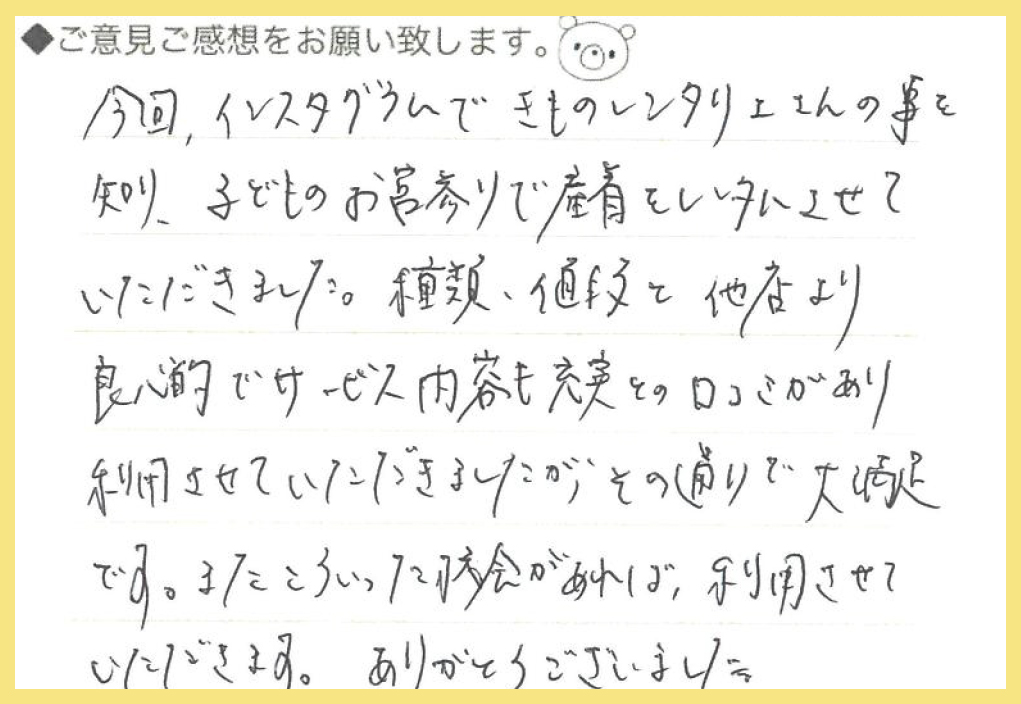 ◆ご意見ご感想をお願い致します。
今回、インスタグラムできものレンタリエさんの事を
知り、子どものお宮参りで産着をレンタルさせて
いただきました。種類、値段と他店より
良心的でサービス内容も充実との口コミがあり
利用させていただきましたが、その通りで大満足
です。またこういった機会があれば、利用させて
いただきます。ありがとうございました